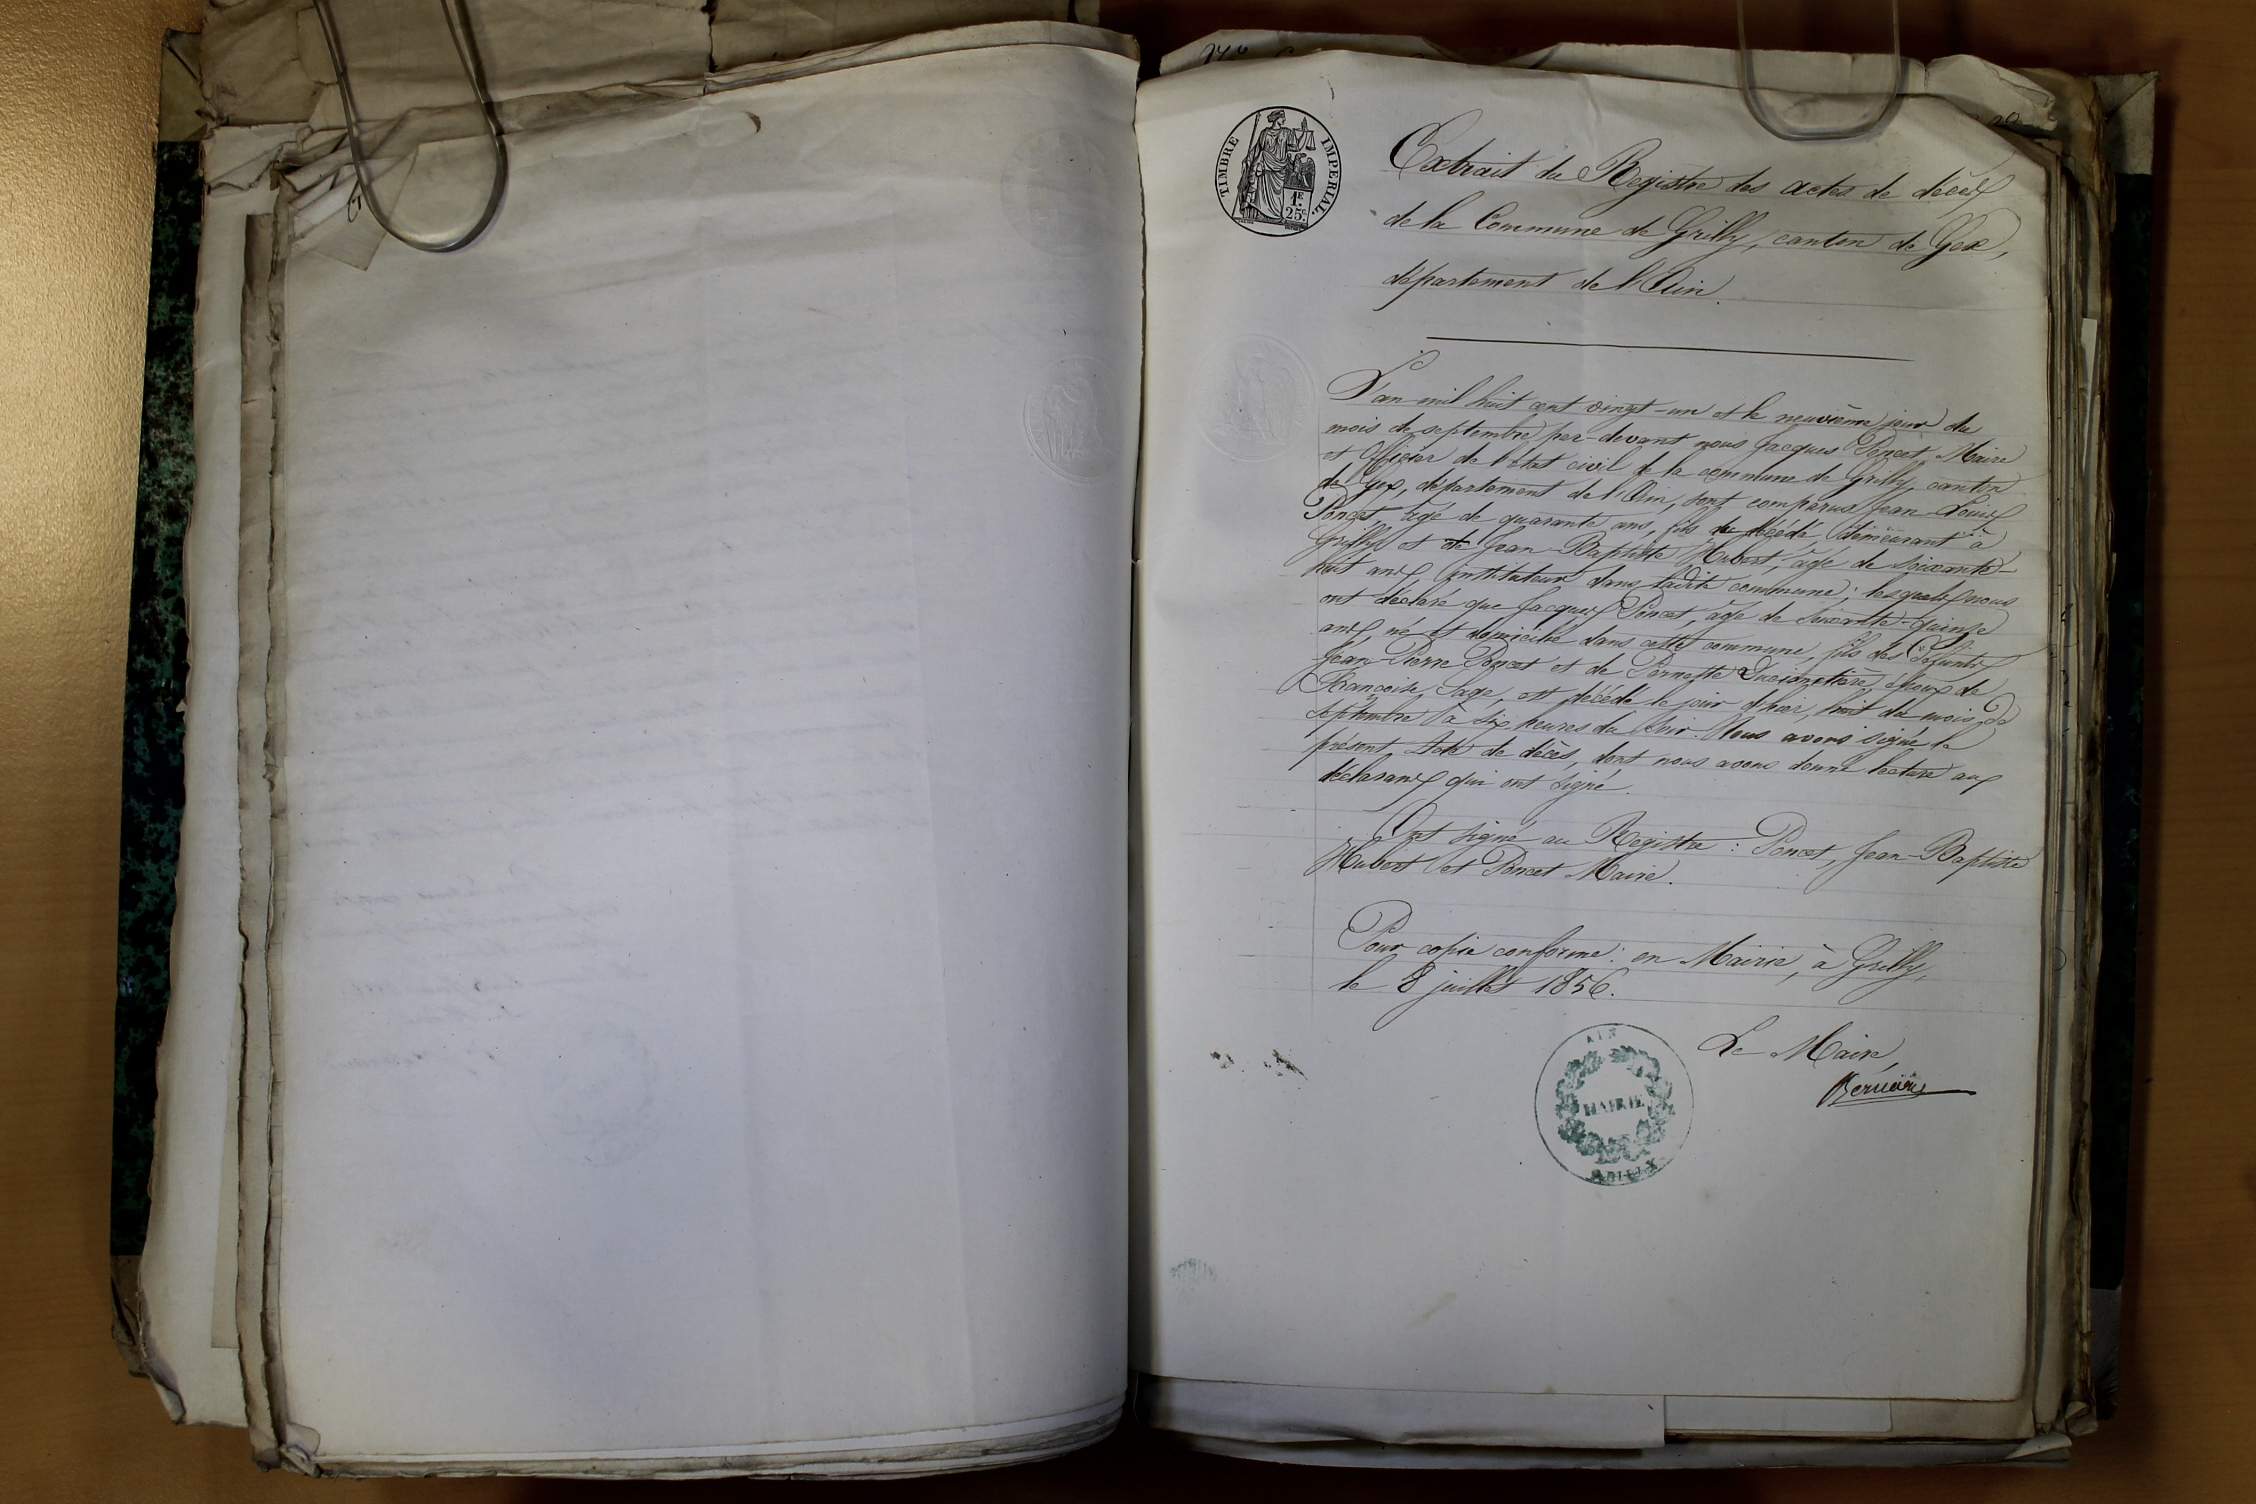 TIMBRE IMPERIAL
1F.
25c.
Extrait du Registre des actes de décès
de la Commune de Grilly, canton de Gex,
département de l'Ain.
L'an mil huit cent vingt-un et le neuvième jour du
mois de septembre par-devant nous Jacques Poncet, Maire
et Officier de l'état civil de la commune de Grilly, canton
de Gex, département de l'Ain, sont comparus Jean-Louis
Poncet, âgé de quarante ans, fils du décédé, demeurant à
Grilly et de Jean-Baptiste Hubert, âgé de soixante-
huit ans, instituteur dans ladite commune; lesquels nous
ont déclaré que Jacques Poncet, âgé de soixante-quinze
ans, né et domicilié dans cette commune, fils des défunts
Jean-Pierre Poncet et de Pernette époux de
Françoise Sage, est décédé le jour d'hier, huit du mois de
septembre à six heures du soir. Nous avons signé le
présent acte de décès, dont nous avons donné lecture aux
déclarans qui ont signé.
Ont signé au Registre : Poncet, Jean-Baptiste
Hubert et Poncet Maire.
Pour copie conforme : en Mairie, à Grilly,
le 8 juillet 1856.
Le Maire,
AIN
MAIRIE
GRILLY